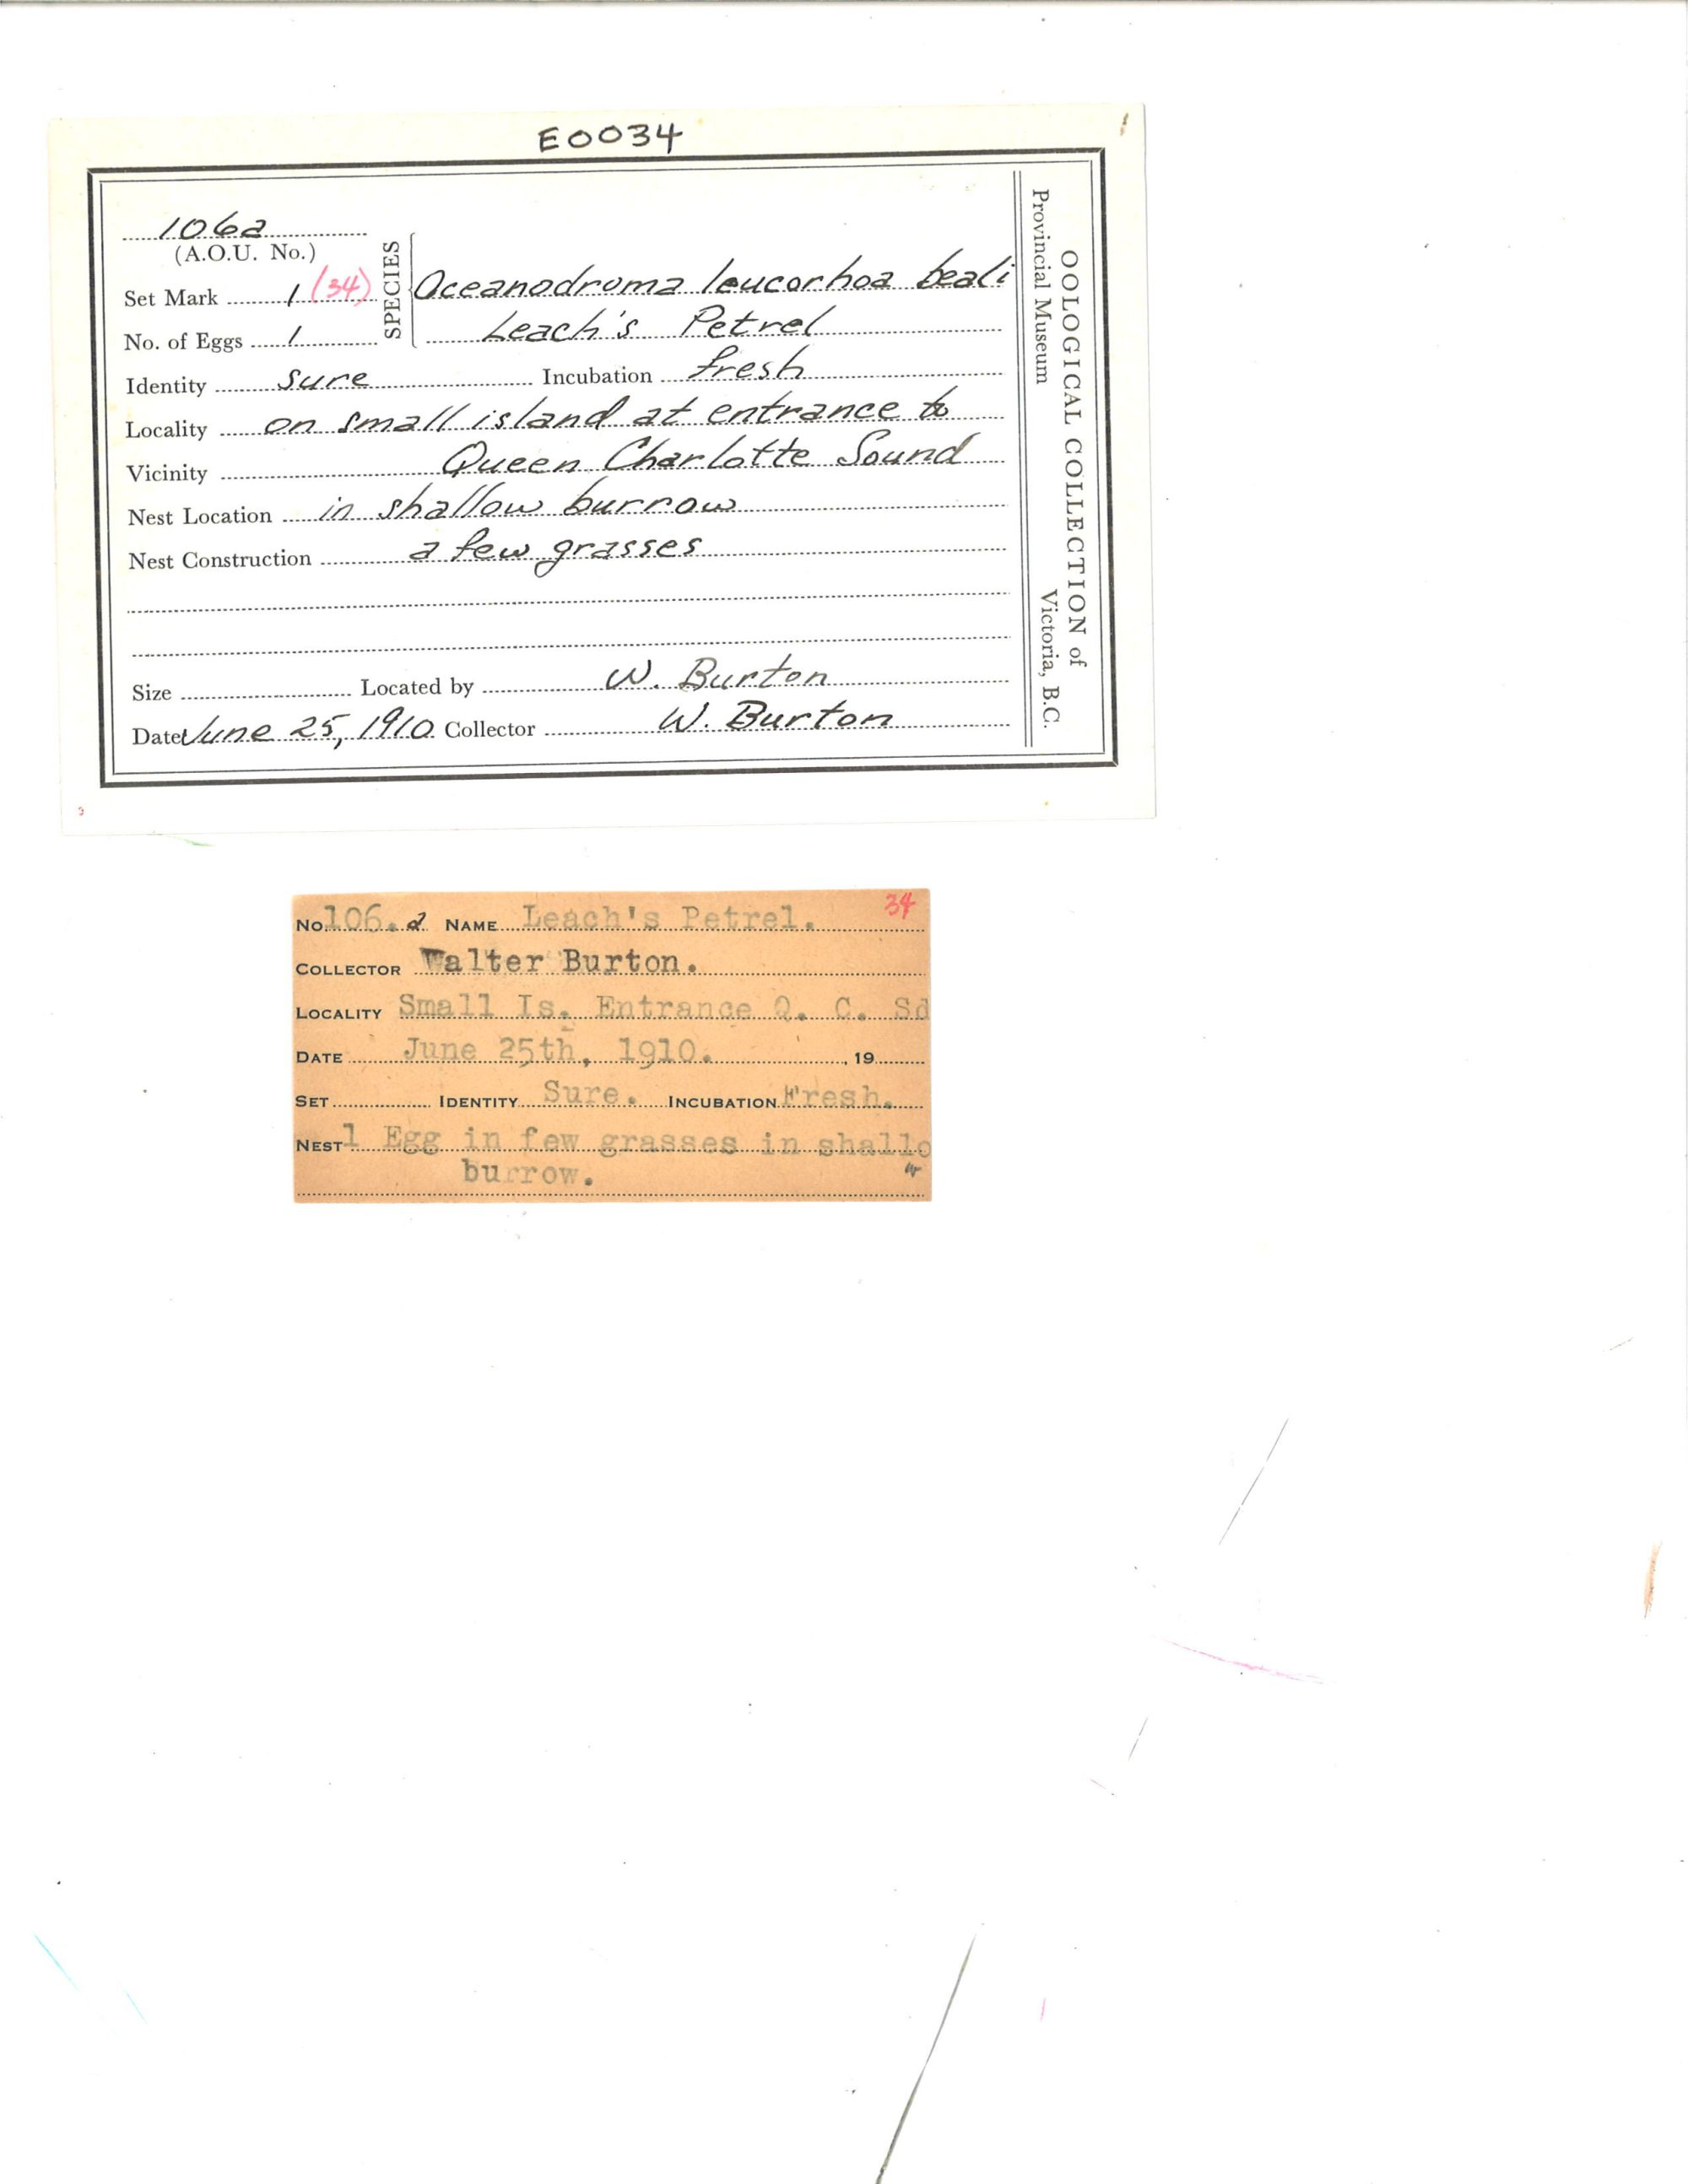 E0034
106a
(A.O.U. No.)
Set Mark 1 (34)
No. of Eggs 1
SPECIES
Oceanodroma leucorhoa beali
Leach's Petrel
Identity sure Incubation fresh
Locality on small island at entrance to
Vicinity Queen Charlotte Sound
Nest Location in shallow burrow
Nest Construction a few grasses
Size Located by W. Burton
Date June 25, 1910 Collector W. Burton
OOLOGICAL COLLECTION of
Provincial Museum Victoria, B.C.
34
No. 106.a NAME Leach's Petrel.
COLLECTOR Walter Burton.
LOCALITY Small Is. Entrance Q. C. Sd
DATE June 25th, 1910. , 19
SET IDENTITY Sure. INCUBATION Fresh.
NEST 1 Egg in few grasses in shallo
burrow. w